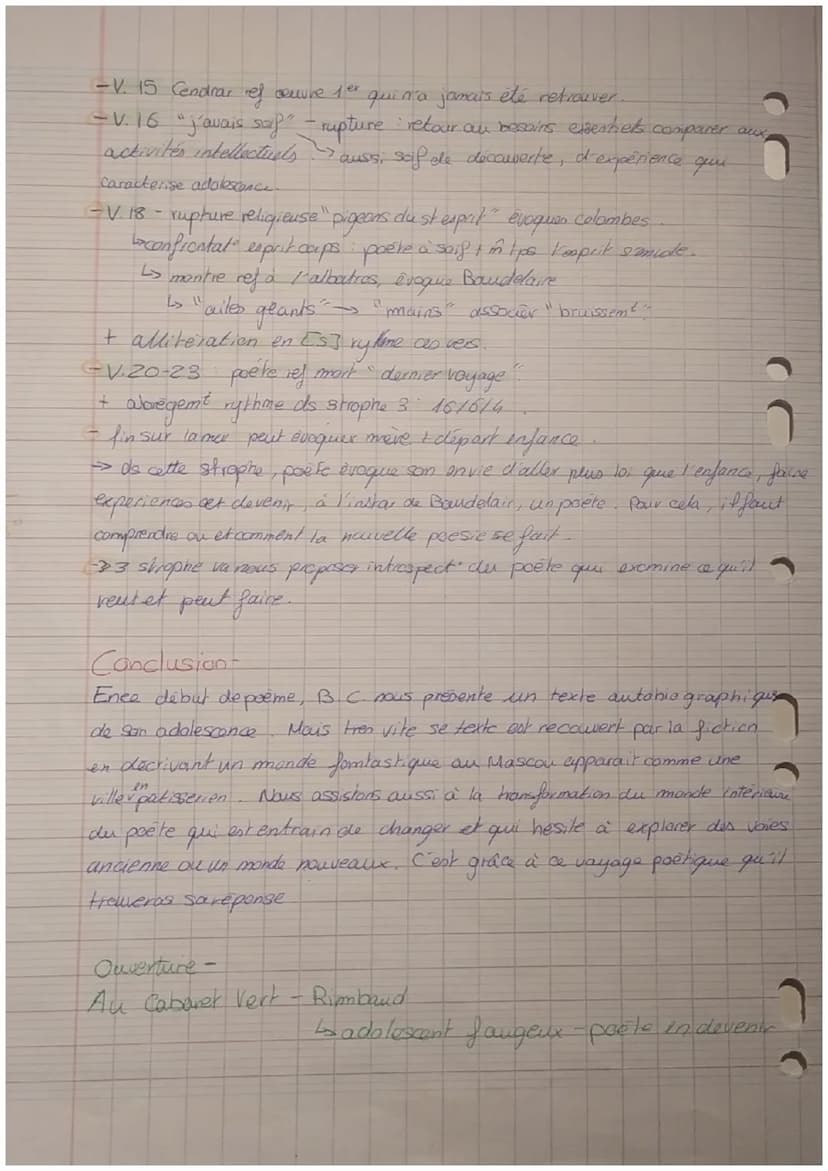 -V. 15 Cendrar ref œuvre 1er qui n'a jamais été retrouver.
-V. 16 "j'avais soif" - rupture : retour au besoins essentiels comparer aux
activités intellectuels. → aussi soif de découverte, d'expérience qui
caracterise adolescence.
-V. 18 - rupture religieuse "pigeons du st esprit" évoquen colombes.
↳ confrontat° esprit corps : poète à soif + m̂ tps l'esprit
↳ montre ref à l'albatros, évoque Baudelaire
↳ "ailes géants" → "mains" associer "bruissemt".
+ allitération en [s] rythme ces vers.
-V. 20-23 poète ref mort "dernier voyage".
+ abrégemt rythme ds strophe 3 : 16/6/4.
- fin sur la mer peut évoquer mère + départ enfance.
→ ds cette strophe, poète évoque son envie d'aller plus loi que l'enfance, faire
experiences et devenir, à l'instar de Baudelair, un poète. Pour cela, il faut
comprendre ou et comment la nouvelle poesie se fait.
→ 3 strophe va nous proposer introspect° du poète qui examine ce qu'il
veut et peut faire.
Conclusion-
En ce début de poème, B.C. nous présente un texte autobiographique
de son adolescence. Mais tren vite se texte est recouvert par la fiction
en decrivant un monde fantastique au Moscou apparait comme une
ville en patisserien. Nous assistons aussi à la transformation du monde intérieure
du poète qui est entrain de changer et qui hesite à explorer des voies
ancienne ou un monde nouveaux. C'est grâce à ce voyage poétique qu'il
trouveras sa réponse
Ouverture -
Au Cabaret Vert - Rimbaud
↳ adolescent faugeux - poète en devenir